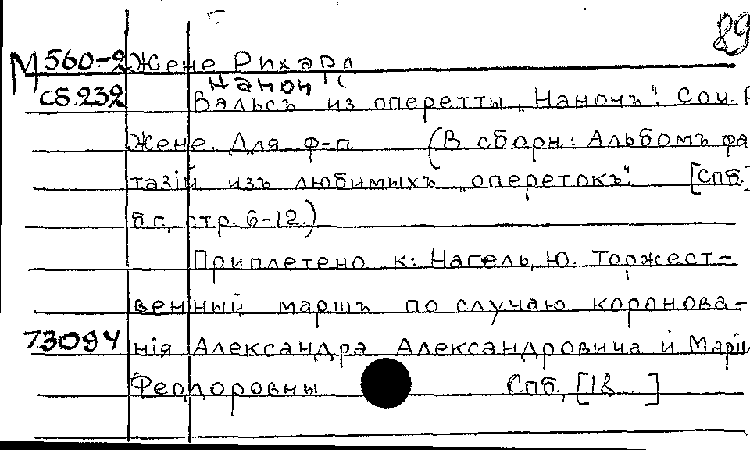 89
М 560-2 Жене Рихард
Нанон
Сб.232 Вальсъ из оперетты "Наночъ". Соч. Р
Жене. Для ф-п. (В сборн: Альбомъ фа
тазій изъ любимыхъ "оперетокъ". [Спб.]
б.г., стр. 6-12.)
Приплетено к: Нагель, Ю. Торжест-
венный маршъ по случаю коронова-
73094 нія Александра Александровича и Маріи
Феодоровны Спб., [18 ]